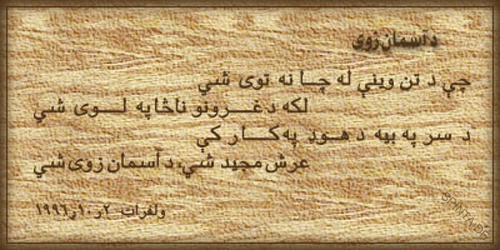 د آسمان زوی
چې د تن وينې له چا نه توی شي
لکه د غرونو ناڅاپه لوی شي
د سر په بيه د هوډ په کار کې
عرش مجيد شي، د آسمان زوی شي
ولفرات ۲ر۱۰ر۱۹۹٦